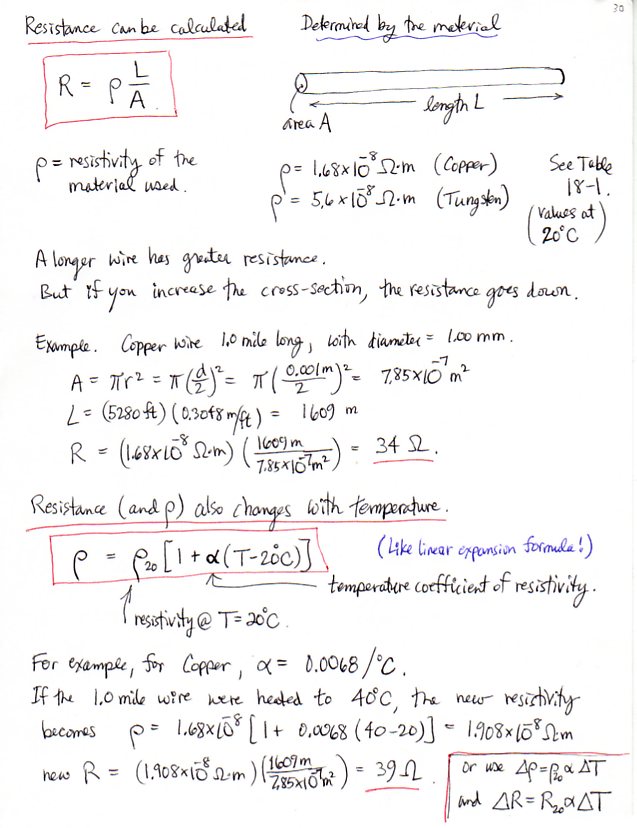 30
Resistance can be calculated
R = ρ L/A
ρ = resistivity of the
material used.
Determined by the material
area A
length L
ρ = 1.68×10⁻⁸ Ω·m (Copper)
ρ = 5.6×10⁻⁸ Ω·m (Tungsten)
See Table
18-1.
(values at
20°C)
A longer wire has greater resistance.
But if you increase the cross-section, the resistance goes down.
Example. Copper wire 1.0 mile long, with diameter = 1.00 mm.
A = πr² = π(d/2)² = π(0.001m/2)² = 7.85×10⁻⁷ m²
L = (5280 ft)(0.3048 m/ft) = 1609 m
R = (1.68×10⁻⁸ Ω·m)(1609 m/7.85×10⁻⁷m²) = 34 Ω.
Resistance (and ρ) also changes with temperature.
ρ = ρ₂₀[1 + α(T-20°C)]
(Like linear expansion formula!)
temperature coefficient of resistivity.
resistivity @ T=20°C.
For example, for Copper, α = 0.0068/°C.
If the 1.0 mile wire were heated to 40°C, the new resistivity
becomes ρ = 1.68×10⁻⁸[1+ 0.0068(40-20)] = 1.908×10⁻⁸ Ω·m
new R = (1.908×10⁻⁸ Ω·m)(1609m/7.85×10⁻⁷m²) = 39 Ω.
or use Δρ=ρ₂₀αΔT
and ΔR=R₂₀αΔT